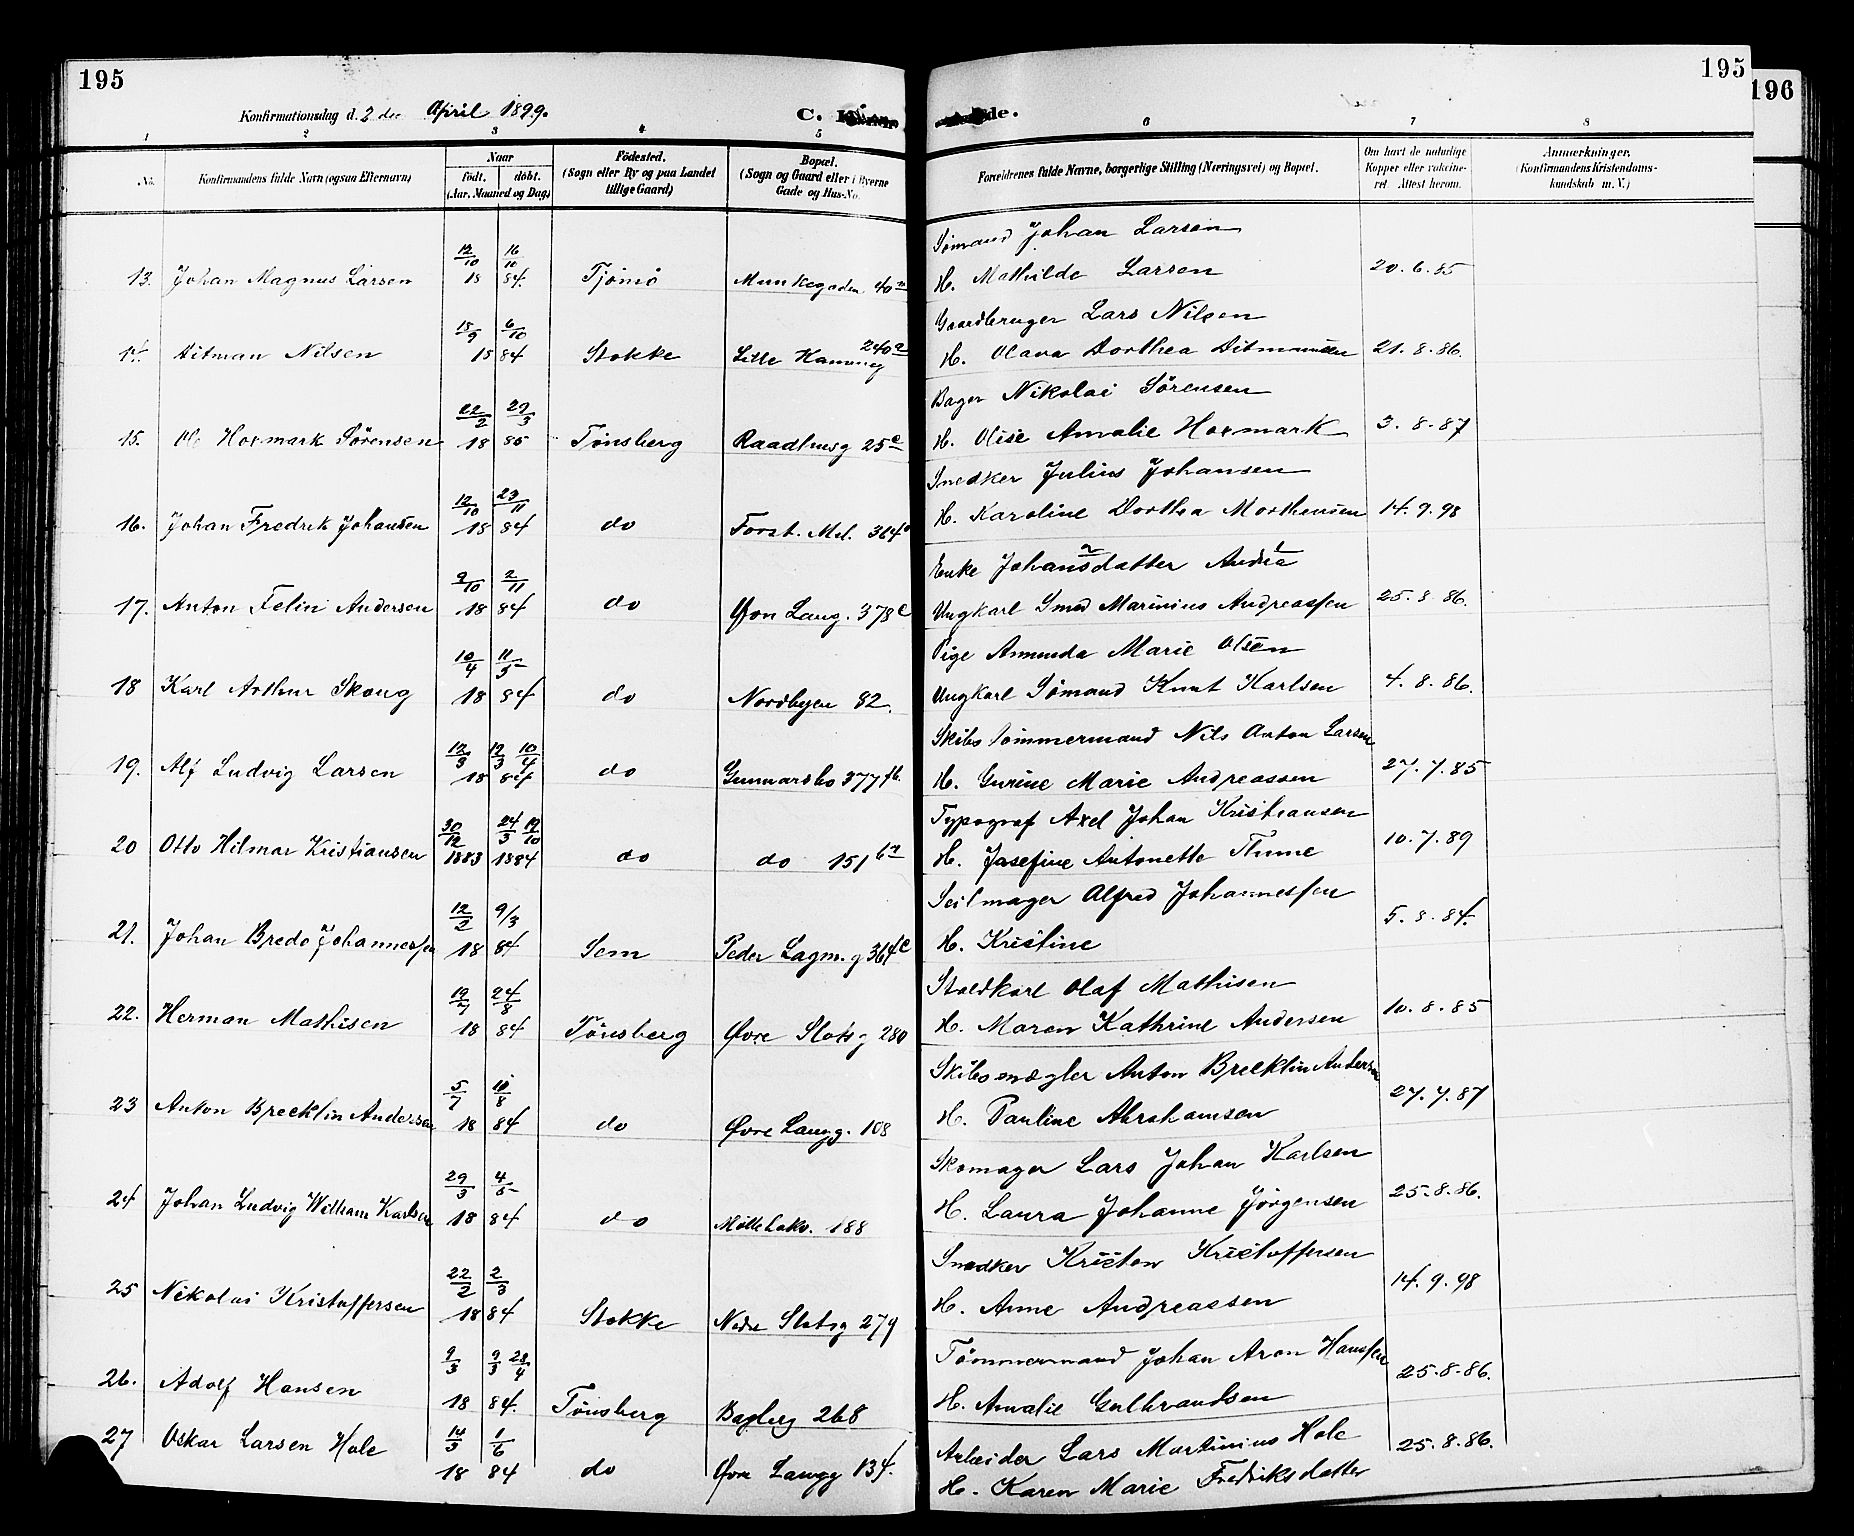 195
195
196
Konfirmationsdag d. 2 den April 1899.
C.
de.
1 2 3 4 5 6 7 8
No.
Konfirmandens fulde Navn (ogsaa Efternavn)
Naar
födt. döbt.
(Aar, Maaned og Dag)
Födested.
(Sogn eller By og paa Landet
tillige Gaard)
Bopæl.
(Sogn og Gaard eller i Byerne
Gade og Hus-No.
Forældrenes fulde Navne, borgerlige Stilling (Næringsvei) og Bopæl.
Om havt de naturlige
Kopper eller vakcine-
ret. Attest herom.
Anmærkninger,
(Konfirmandens Kristendoms-
kundskab m. V.)
Sömand Johan Larsen
13. Johan Magnus Larsen 12/10 18 84. Tjömö Munkegaden 40 H. Mathilde Larsen 20.6.85
Gaardbruger Lars Nilsen
14. Ditman Nilsen 15/9 6/10 18 84 Stokke Lille 240 H. Olava Dorthea Ditmansen 21.8.86.
Bager Nikolai Sörensen
15. Hormark Sörensen 22/2 29/3 18 85 Tönsberg Raadhusg 25c H. Olise Amalie Hormark 3.8.87
Snedker Julius Johansen
16. Johan Fredrik Johansen 12/10 23/11 18 84 do Forst. Mel. 364 H. Karoline Dorthea Morthensen 14.9.98
Enke Johansdatter Andrea
17. Anton Felin Andersen 9/10 2/11 18 84 do Øvre Lang. 378c Ungkarl Smed Marinius Andreassen 25.8.86.
Pige Amunda Marie Olsen
18 Karl Arthur Skoug 10/4 11/5 18 84 do Nordbyen 82. Ungkarl Sömand Knut Karlsen 4.8.86.
Skibstömmermand Nils Anton Larsen
19. Alf Ludvig Larsen 12/3 12/3 10/4 18 84 do Gunnarsbo 377 H. Gurine Marie Andreassen 27.7.85
Typograf Axel Johan Kristiansen
20 Otto Hilmar Kristiansen 30/12 1883 24/3 12/10 1884 do do 151 H. Josefine Antonette Thune 10.7.89
Seilmager Alfred Johannessen
21. Johan Brede Johannessen 12/2 9/3 18 84 Sem Peder Lagm. g 364c H. Kristine 5.8.84.
Staldkarl Olaf Mathisen
22. Herman Mathisen 19/7 24/8 18 84 Tönsberg Øvre Slotsg 280 H. Maren Kathrine Andersen 10.8.85
Skibsmægler Anton Brecklin Andersen
23 Anton Brecklin Andersen 5/7 18 84 do Øvre Langg. 108 H. Pauline Abrahamsen 27.7.87
Skomager Lars Johan Karlsen
24 Johan Ludvig Wilhem Karlsen 29/3 4/5 18 84 do Möllebakv. 188 H. Laura Johanne Jörgensen 25.8.86.
Snedker Kristen Kristoffersen
25 Nikolai Kristoffersen 22/2 2/3 18 84 Stokke Nedre Slotsg 279 H. Anne Andreassen 14.9.98
Tömmermand Johan Aron Hanssen
26. Adolf Hansen 9/3 9/3 28/4 18 84. Tönsberg Bagberg 268 H. Amalie Gulbrandsen 25.8.86.
Arbeider Lars Martinius Hole
27 Oskar Larsen Hole 14/3 1/6 18 84 do Øvre Langg 134. H. Karen Marie Fredriksdatter 25.8.86.